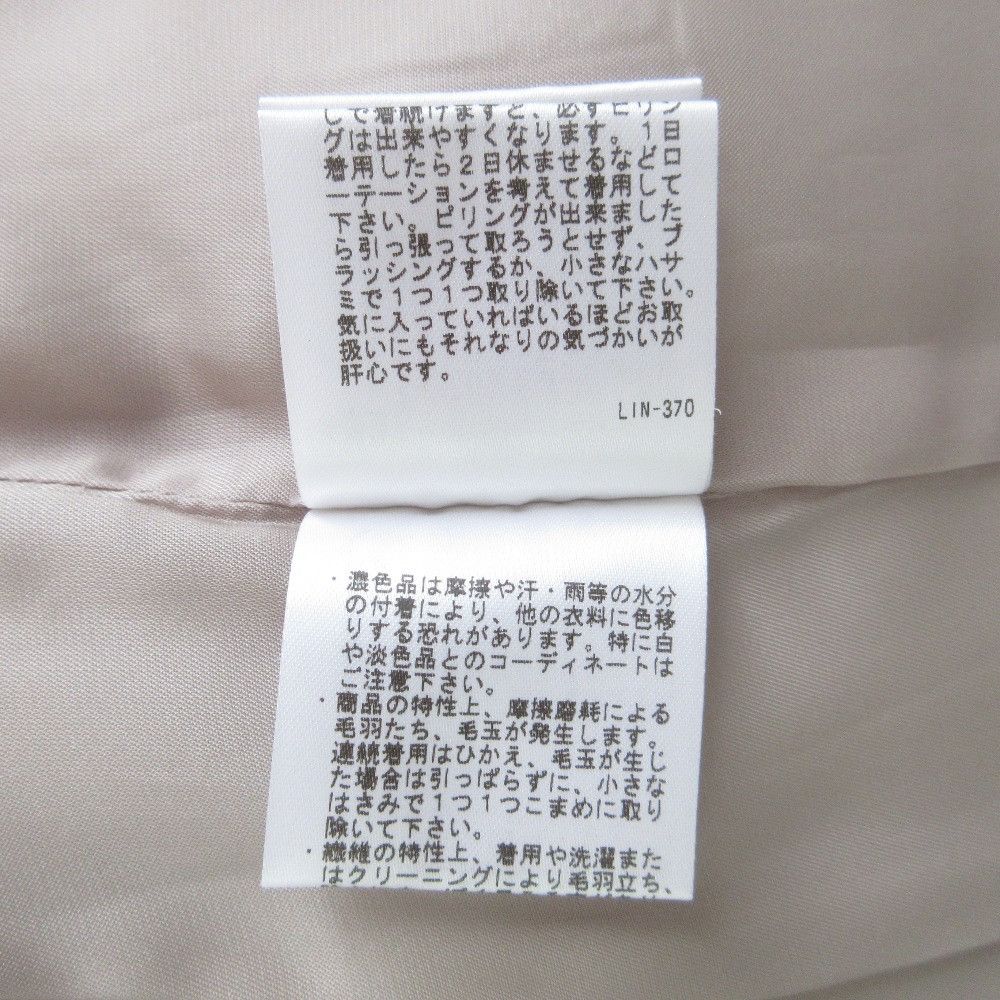 しで着続けますと、必ずピリン
グは出来やすくなります。1日
着用したら2日休ませるなどロ
ーテーションを考えて着用して
下さい。ピリングが出来ました
ら引っ張って取ろうとせず、ブ
ラッシングするか、小さなハサ
ミで1つ1つ取り除いて下さい。
気に入っていればいるほどお取
扱いにもそれなりの気づかいが
肝心です。
LIN-370
・濃色品は摩擦や汗・雨等の水分
の付着により、他の衣料に色移
りする恐れがあります。特に白
や淡色品とのコーディネートは
ご注意下さい。
・商品の特性上、摩擦磨耗による
毛羽たち、毛玉が発生します。
連続着用はひかえ、毛玉が生じ
た場合は引っぱらずに、小さな
はさみで1つ1つこまめに取り
除いて下さい。
・繊維の特性上、着用や洗濯また
はクリーニングにより毛羽立ち、